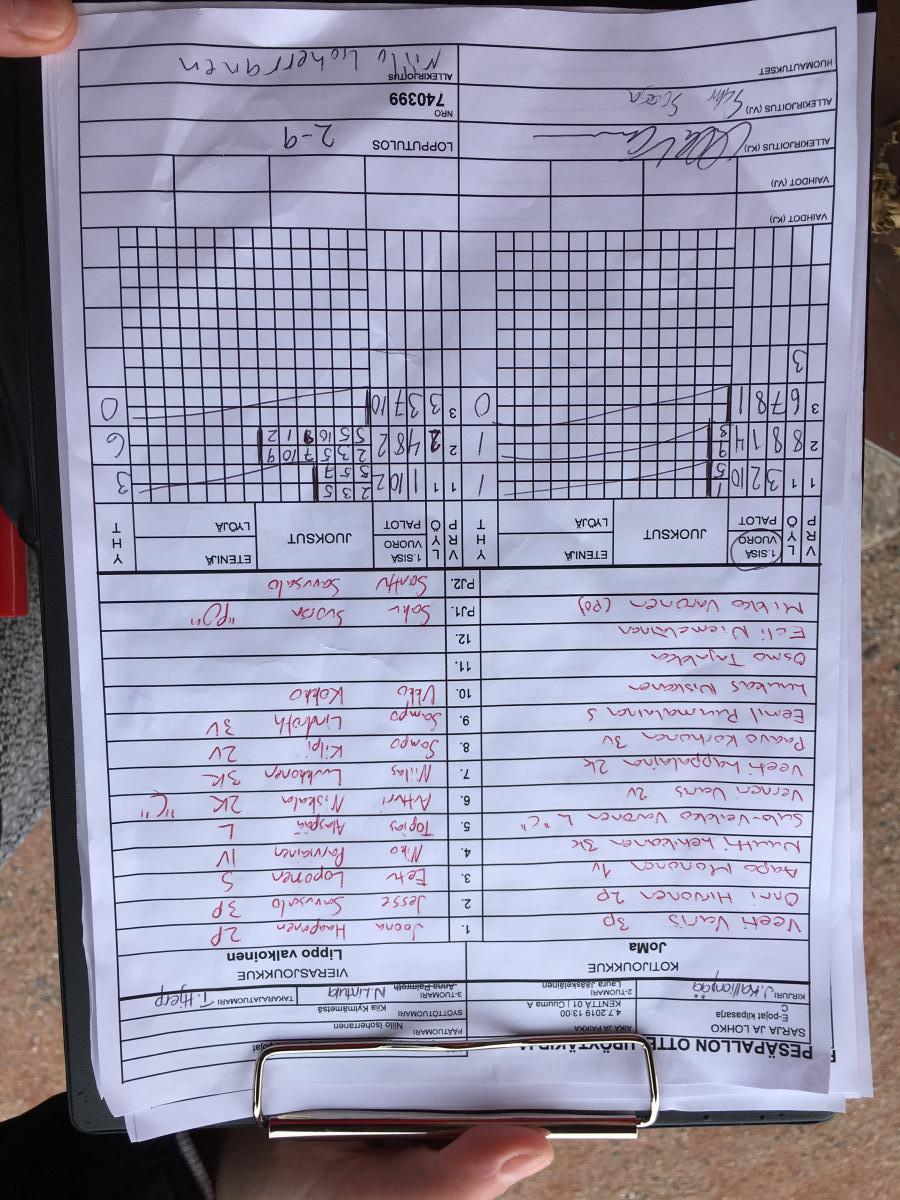 PESÄPALLON OTTE
SARJA JA LOHKO
E-pojat kilpasarja
C
AIKA JA PAIKKA
4.7.2019 13:00
KENTTÄ 01 | Cuuma A
PÄÄTUOMARI Niilo Isoherranen
SYÖTTÖTUOMARI Kiia Kylmämetsä
KIRJURI J.Kallionpää
2-TUOMARI Laura Jääskeläinen
3-TUOMARI Anna Palmroth N.Lintula
TAKARAJATUOMARI T. Hjerp
KOTIJOUKKUE
JoMa
VIERASJOUKKUE
Lippo valkoinen
Veeti Varis 3p 1. Joona Haaponen 2P
Onni Hirvonen 2p 2. Jesse Savusalo 3P
Aapo Mononen 1v 3. Eetu Laponen S
Nuutti 3k 4. Niko Parviainen 1V
Sulo-Veikko Varonen L "C" 5. Topias L
Verneri Varis 2v 6. Artturi Niskala 2K "C"
Veeti Lappalainen 2k 7. Niilas Lukkonen 3K
Paavo Korhonen 3v 8. Sampo Kilpi 2V
Eemil Purmalainen S 9. Sampo Lindroth 3V
Luukas Niskanen 10. Ukko Kokko
Osmo 11.
Eeli Niemeläinen 12.
Mikko Varonen (PO) PJ1. Saku Suorsa "PO"
PJ2. Santtu Savusalo
V P R L Y Ö 1.SISÄ VUORO PALOT JUOKSUT ETENIJÄ LYÖJÄ Y H T
V P R L Y Ö 1.SISÄ VUORO PALOT JUOKSUT ETENIJÄ LYÖJÄ Y H T
1 1 3 2 10 1 5 1
1 1 1 10 2 2 3 5 5 5 7 3
2 8 8 1 4 9 3 1
2 2 4 8 2 2 3 5 7 10 9 5 5 10 9 1 2 6
3 6 7 8 1 0
3 3 3 7 10 0
3
VAIHDOT (KJ)
VAIHDOT (VJ)
ALLEKIRJOITUS (KJ)
LOPPUTULOS 2-9
ALLEKIRJOITUS (VJ)
NRO
740399
HUOMAUTUKSET
ALLEKIRJOITUS
Niilo Isoherranen